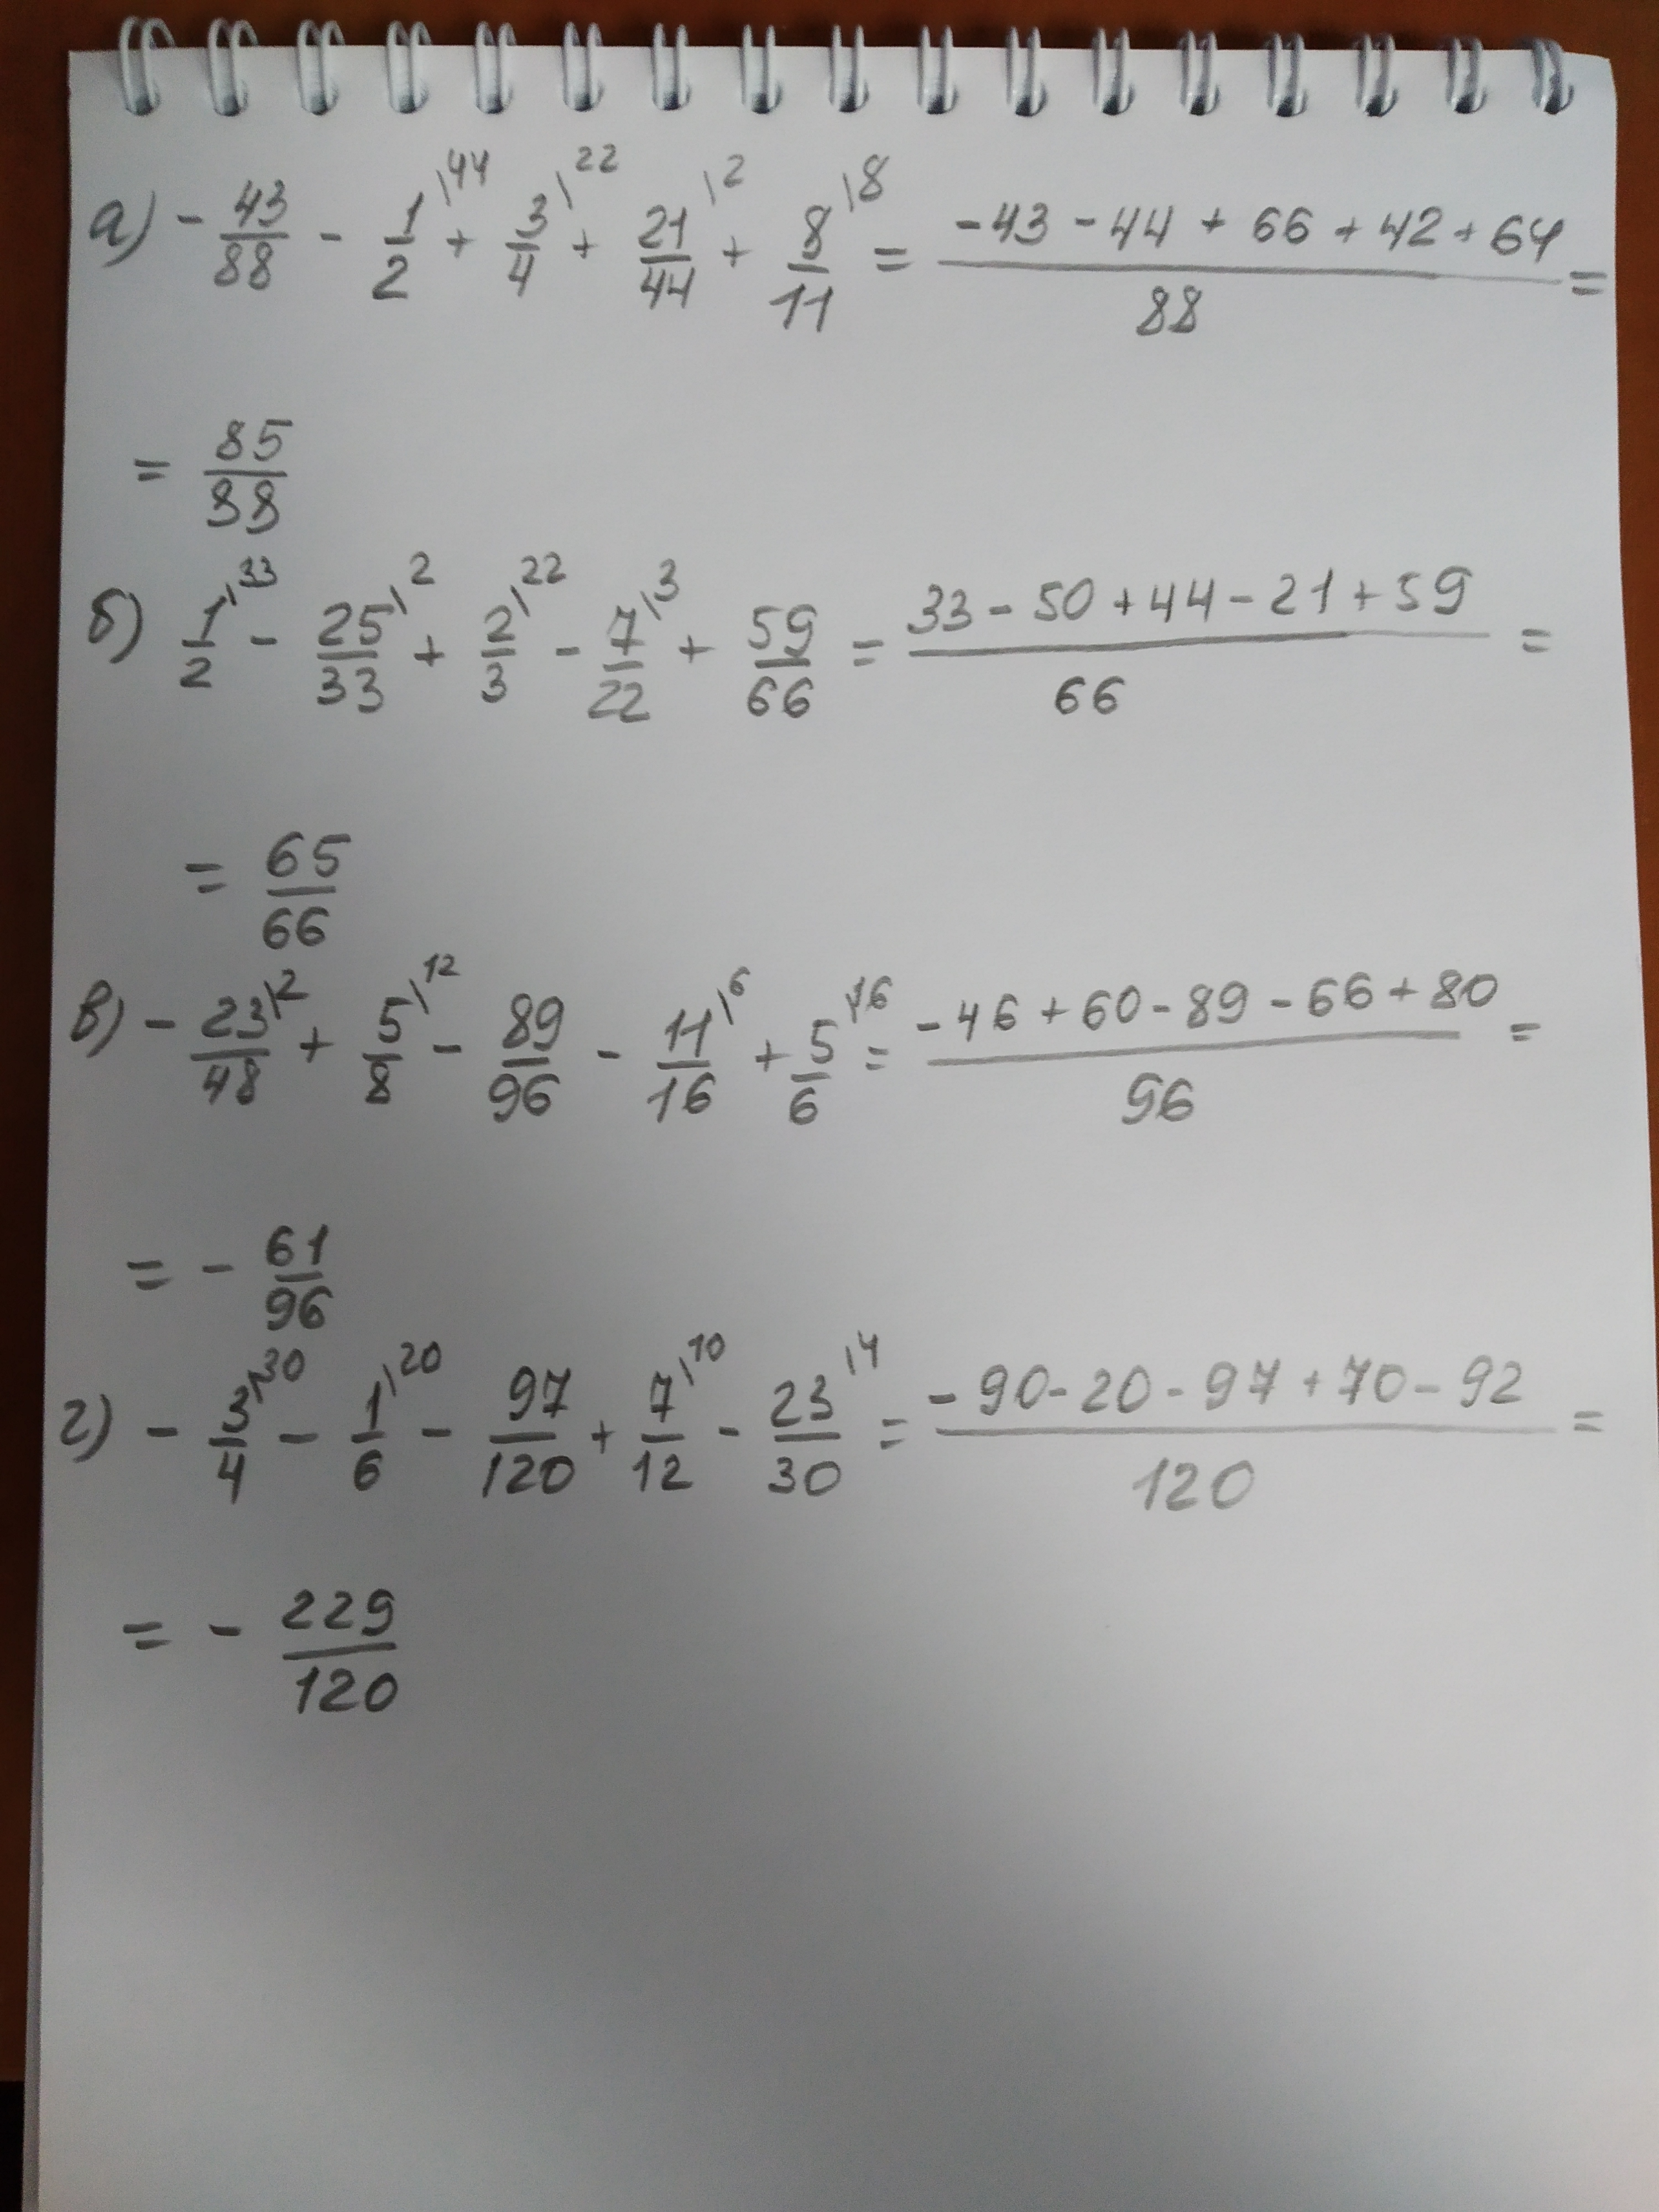 а) - 43/88 - 1/2 \44 + 3/4 \22 + 21/44 \2 + 8/11 \8 = (-43 - 44 + 66 + 42 + 64)/88 =
= 85/88
б) 1/2 \33 - 25/33 \2 + 2/3 \22 - 7/22 \3 + 59/66 = (33 - 50 + 44 - 21 + 59)/66 =
= 65/66
в) - 23/48 \2 + 5/8 \12 - 89/96 - 11/16 \6 + 5/6 \16 = (-46 + 60 - 89 - 66 + 80)/96 =
= - 61/96
г) - 3/4 \30 - 1/6 \20 - 97/120 + 7/12 \10 - 23/30 \4 = (-90 - 20 - 97 + 70 - 92)/120 =
= - 229/120